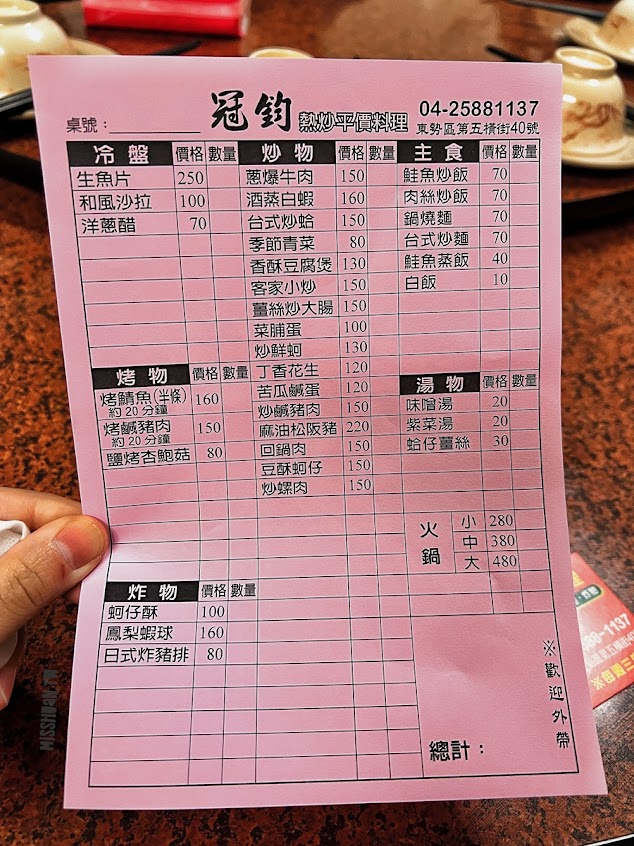 桌號：
冠鈞 熱炒平價料理
04-25881137
東勢區第五橫街40號
冷盤 價格 數量
生魚片 250
和風沙拉 100
洋蔥醋 70
烤物 價格 數量
烤鯖魚(半條) 160
約20分鐘
烤鹹豬肉 150
約20分鐘
鹽烤杏鮑菇 80
炸物 價格 數量
蚵仔酥 100
鳳梨蝦球 160
日式炸豬排 80
炒物 價格 數量
蔥爆牛肉 150
酒蒸白蝦 160
台式炒蛤 150
季節青菜 80
香酥豆腐煲 130
客家小炒 150
薑絲炒大腸 150
菜脯蛋 100
炒鮮蚵 130
丁香花生 120
苦瓜鹹蛋 120
炒鹹豬肉 150
麻油松阪豬 220
回鍋肉 150
豆酥蚵仔 150
炒螺肉 150
主食 價格 數量
鮭魚炒飯 70
肉絲炒飯 70
鍋燒麵 70
台式炒麵 70
鮭魚蒸飯 40
白飯 10
湯物 價格 數量
味噌湯 20
紫菜湯 20
蛤仔薑絲 30
火鍋
小 280
中 380
大 480
※歡迎外帶
總計：
88-1137
※每週三
MISSHUAN.TW